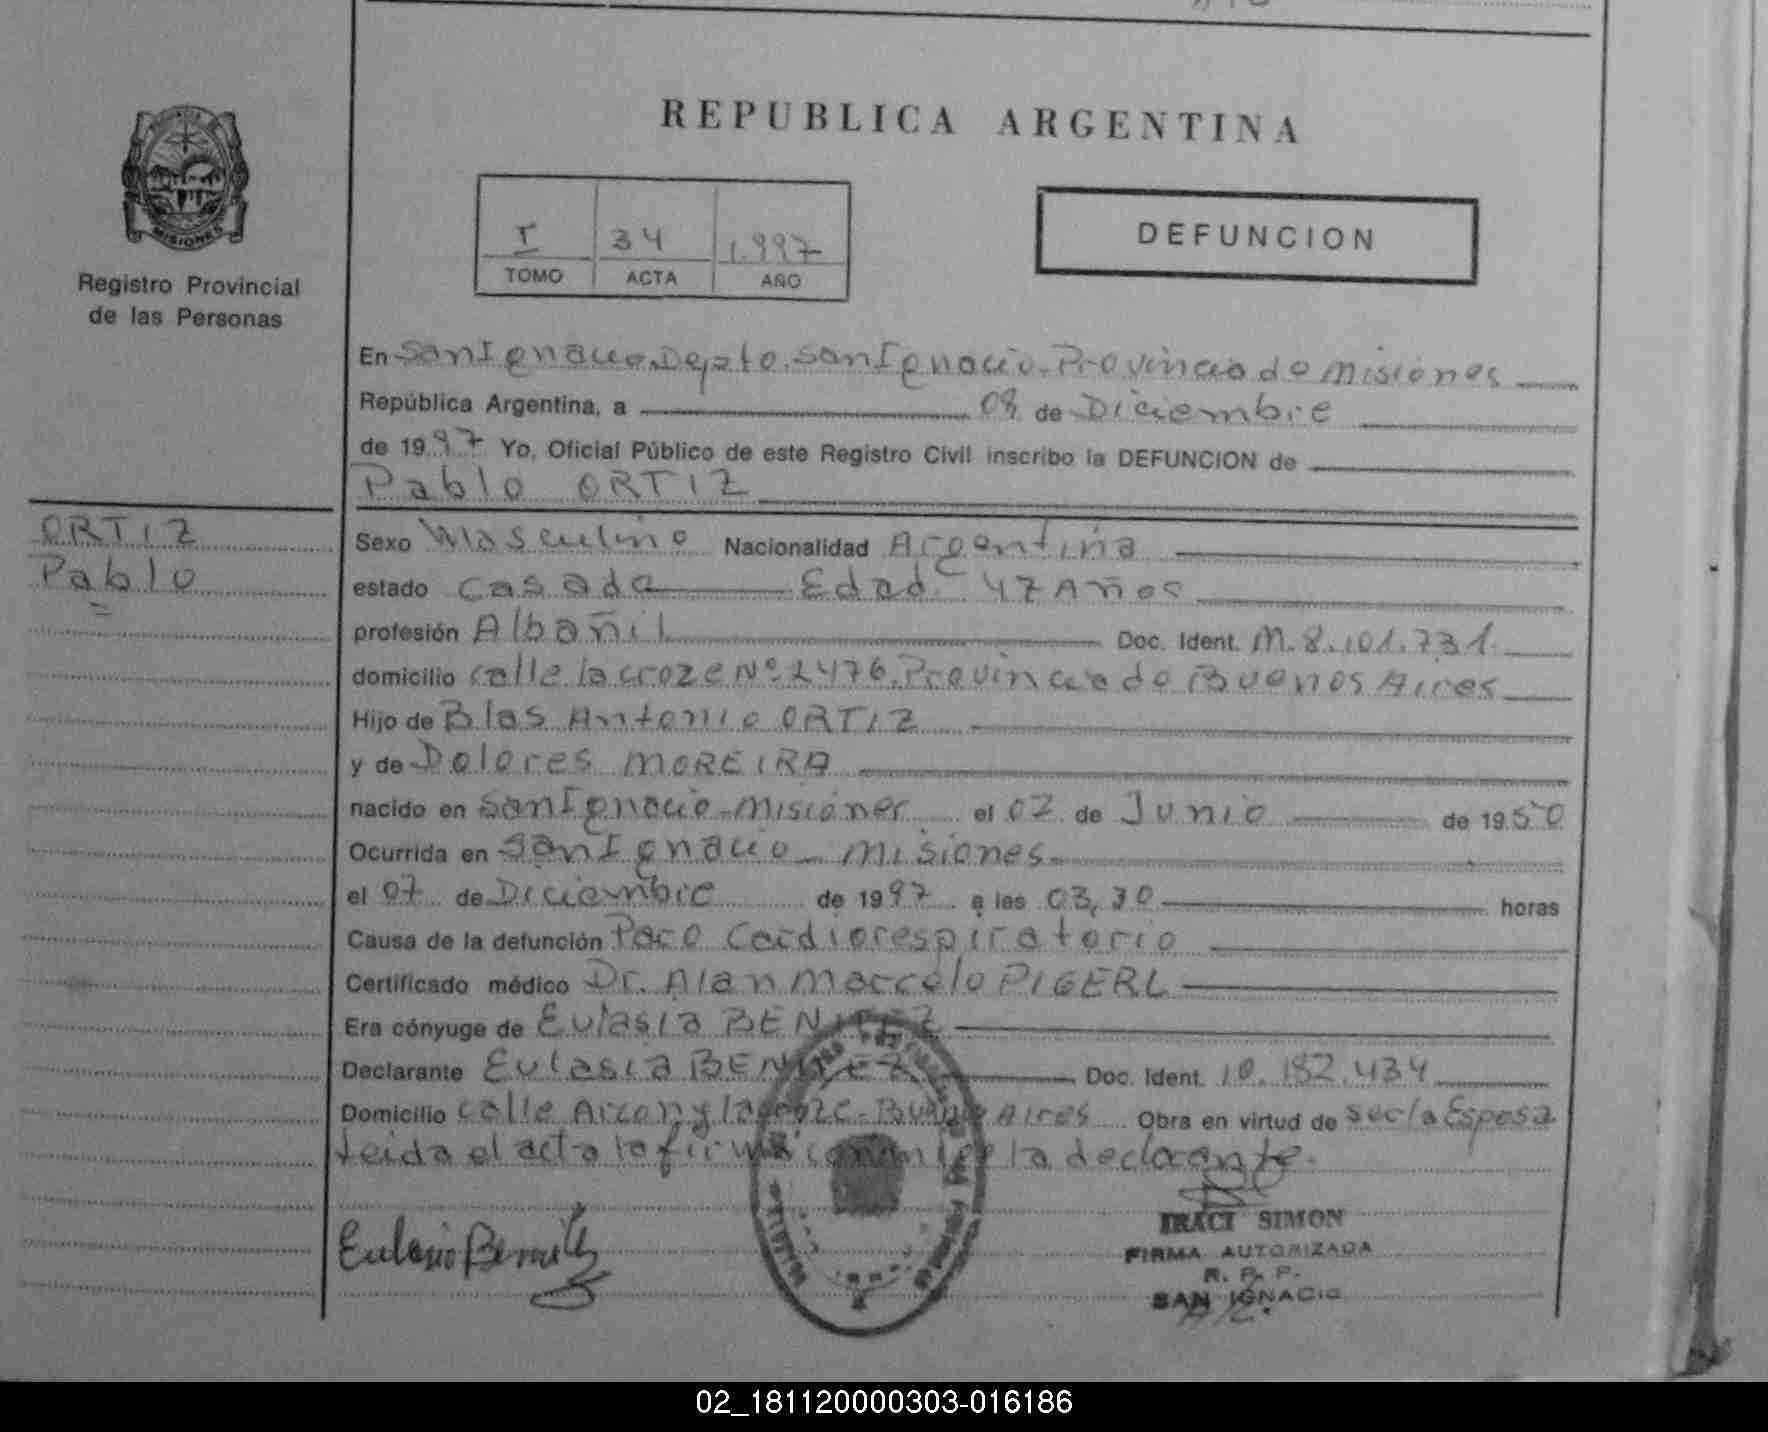 REPUBLICA ARGENTINA
MISIONES
Registro Provincial
de las Personas
I 34 1.997
TOMO ACTA AÑO
DEFUNCION
En San Ignacio. Depto. San Ignacio. Provincia de Misiones
República Argentina, a 08 de Diciembre
de 1997 Yo, Oficial Público de este Registro Civil inscribo la DEFUNCION de
Pablo ORTIZ
ORTIZ
Pablo
Sexo Masculino Nacionalidad Argentina
estado Casado Edad 47 Años
profesión Albañil Doc. Ident. M. 8.101.731.
domicilio calle lacroze Nº 2476. Provincia de Buenos Aires
Hijo de Blas Antonio ORTIZ
y de Dolores MOREIRA
nacido en San Ignacio - Misiones el 02 de Junio de 1950
Ocurrida en San Ignacio - Misiones
el 07 de Diciembre de 1997 a las 03,30 horas
Causa de la defunción Paro Cardiorespiratorio
Certificado médico Dr. Alan Marcelo PIGERL
Era cónyuge de Eulasia BENITEZ
Declarante Eulasia BENITEZ Doc. Ident. 10.182.434
Domicilio calle y lacroze - Buenos Aires Obra en virtud de ser la Esposa
leida el acta la firma conmigo la declarante.
Eulasia Benitez
IRACI SIMON
FIRMA AUTORIZADA
R. P. P.
SAN IGNACIO
02_181120000303-016186